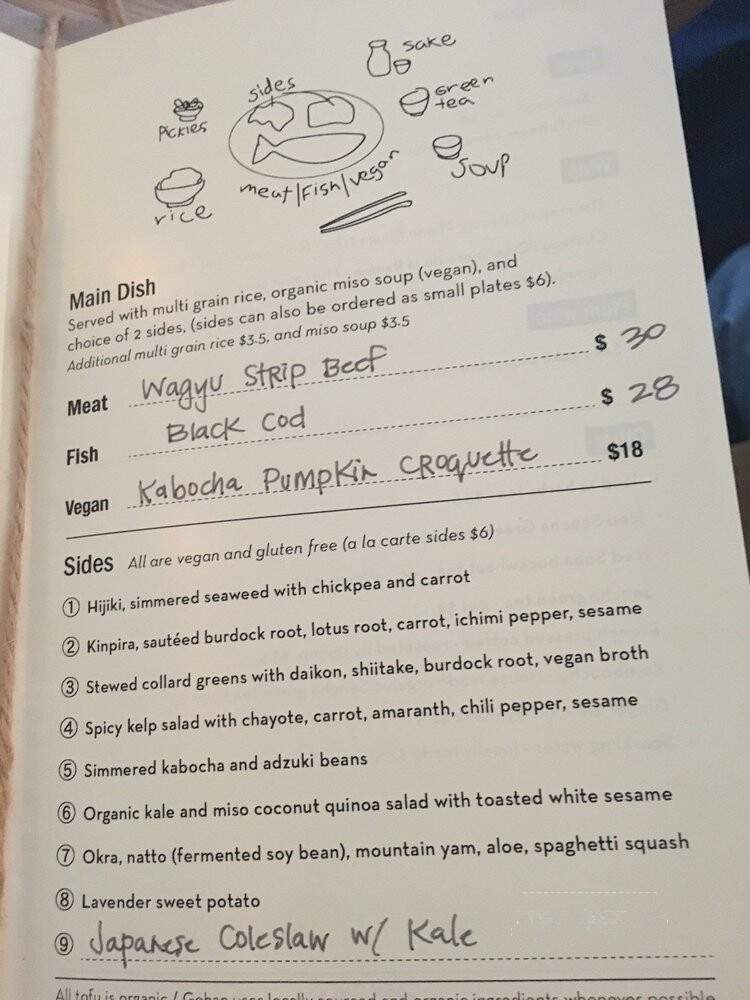 sake
sides
Green
tea
Pickles
soup
meat/Fish/vegan
rice
Main Dish
Served with multi grain rice, organic miso soup (vegan), and
choice of 2 sides, (sides can also be ordered as small plates $6).
Additional multi grain rice $3.5, and miso soup $3.5
Meat Wagyu Strip Beef $ 30
Fish Black Cod $ 28
Vegan Kabocha Pumpkin Croquette $18
Sides All are vegan and gluten free (a la carte sides $6)
① Hijiki, simmered seaweed with chickpea and carrot
② Kinpira, sautéed burdock root, lotus root, carrot, ichimi pepper, sesame
③ Stewed collard greens with daikon, shiitake, burdock root, vegan broth
④ Spicy kelp salad with chayote, carrot, amaranth, chili pepper, sesame
⑤ Simmered kabocha and adzuki beans
⑥ Organic kale and miso coconut quinoa salad with toasted white sesame
⑦ Okra, natto (fermented soy bean), mountain yam, aloe, spaghetti squash
⑧ Lavender sweet potato
⑨ Japanese Coleslaw w/ Kale
All tofu is organic / Gohan uses locally sourced and organic ingredients whenever possible